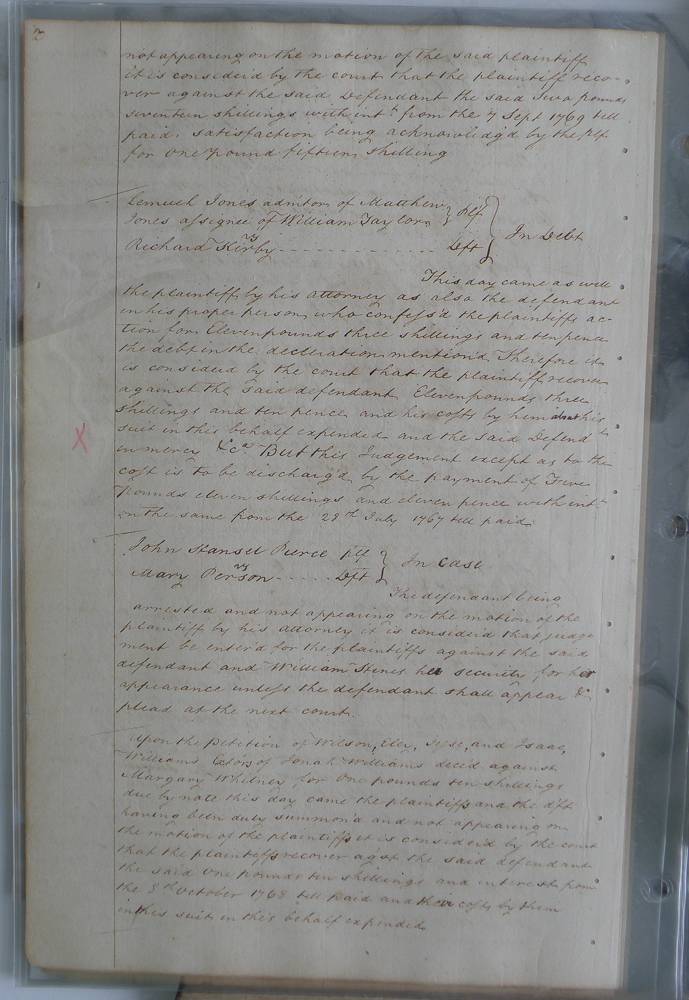 2
not appearing on the motion of the said plaintiff
it is considerd by the court that the plaintiff reco-
ver against the said Defendant the said Two pounds
seventeen shillings with intt from the 7 Sept 1769 till
paid. Satisfaction being acknowledg'd by the plf
for One pound fifteen shilling
Lemuel Jones admitor of Matthew
Jones assignee of William Taylor Plf
vs In Debt
Richard Kirby Dft
This day came as well
the plaintiff by his attorney as also the defendant
in his proper person, who confess'd the plaintiffs ac-
tion for Eleven pounds three shillings and ten pence
the debt in the declaration mention'd Therefore it
is considerd by the court that the plaintiff recover
against the said defendant Eleven pounds three
shillings and ten pence and his costs by him about his
suit in this behalf expended and the said Defendt
in mercy &ca But this Judgement except as to the
cost is to be discharg'd by the payment of Five
Pounds eleven shillings and eleven pence with intt
on the same from the 28th July 1767 till paid
John Hansel Pierce Plf
vs In Case
Mary Person Dft
The defendant being
arrested and not appearing on the motion of the
plaintiff by his attorney it is considerd that judge
ment be enter'd for the plaintiffs against the said
defendant and William Hines her security for her
appearance unless the defendant shall appear &
plead at the next court.
Upon the Petition of Wilson, Eley, and Isaac,
Williams Extors of Jonah Williams decd against
Margary Whitney for One pounds ten shillings
due by note this day came the plaintiffs and the dft
having been duly summon'd and not appearing on
the motion of the plaintiffs it is considerd by the court
that the plaintiffs recover agst the said defendant
the said One pounds ten shillings and interest from
the 8th October 1768 till paid and their costs by them
in this suit in this behalf expended